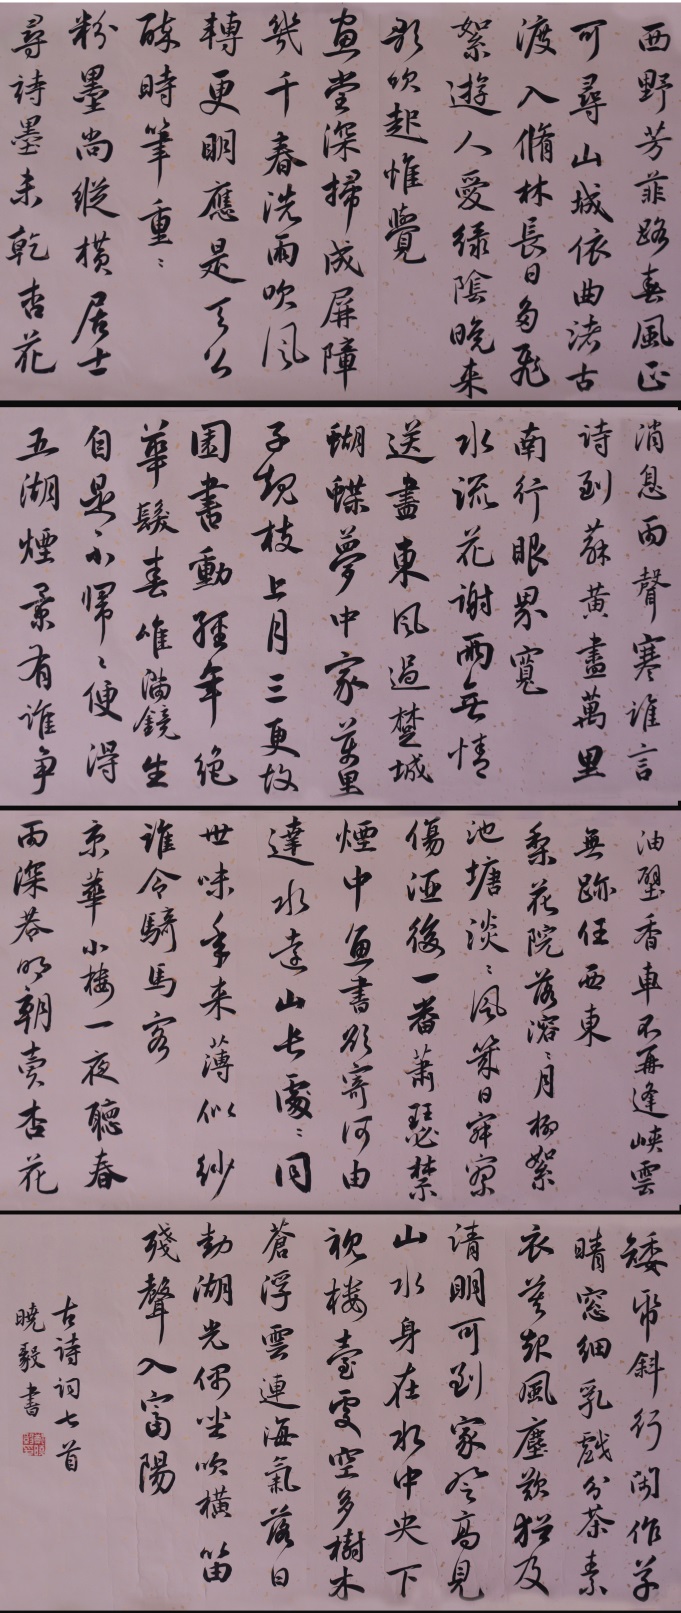 西野芳菲路春風正
可尋山城依曲渚古
渡入脩林長日多飛
絮遊人愛綠陰晚来
歌吹起惟覺
畫堂深掃成屏障
幾千春洗雨吹風
轉更明應是天公
醉時筆重〻
粉墨尚縱橫居士
尋詩墨未乾杏花
消息雨聲寒誰言
詩到蘇黃盡萬里
南行眼界寬
水流花謝兩無情
送盡東風過楚城
蝴蝶夢中家萬里
子規枝上月三更故
園書動經年絕
華髮春唯滿鏡生
自是不歸〻便得
五湖煙景有誰爭
油壁香車不再逢峽雲
無跡任西東
梨花院落溶〻月柳絮
池塘淡〻風幾日寂寥
傷酒後一番蕭瑟禁
煙中魚書欲寄何由
達水遠山長處〻同
世味年来薄似紗
誰令騎馬客
京華小樓一夜聽春
雨深巷明朝賣杏花
矮紙斜行閑作草
晴窓細乳戲分茶素
衣莫起風塵歎猶及
清明可到家登高見
山水身在水中央下
視樓臺處空多樹木
蒼浮雲連海氣落日
動湖光偶坐吹橫笛
殘聲入富陽
古詩詞七首
曉毅書